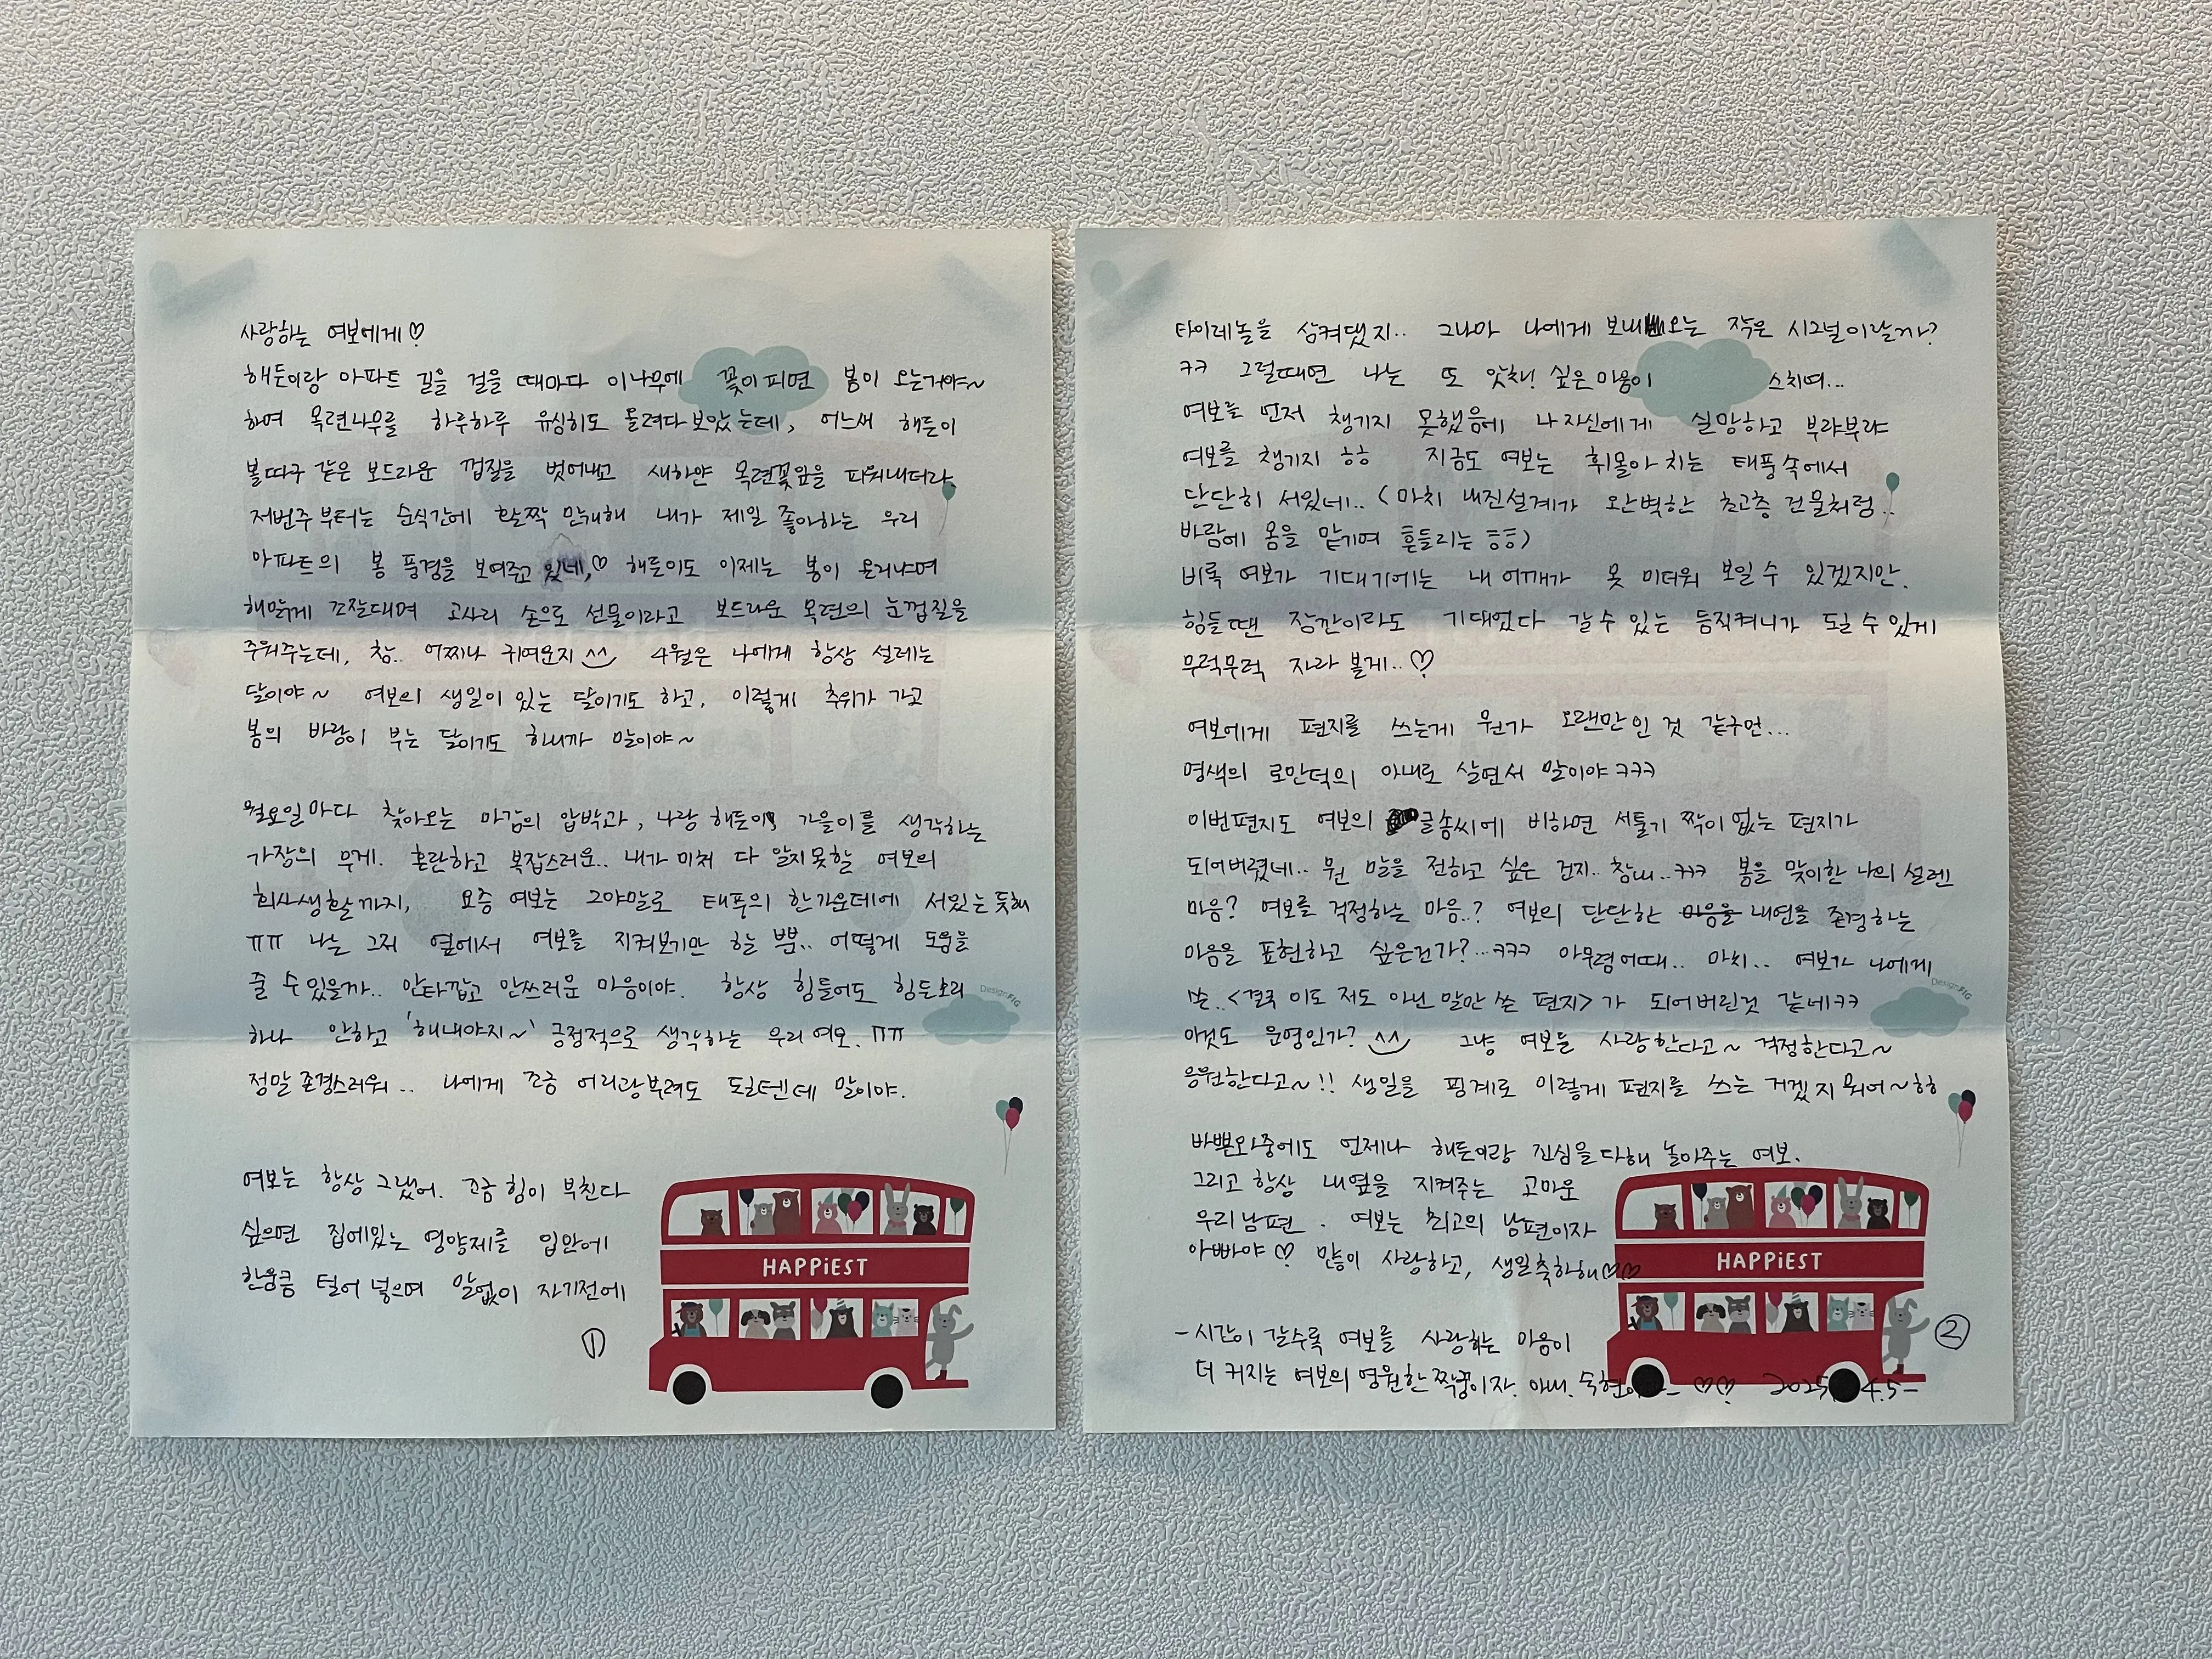 사랑하는 여보에게♡
해든이랑 아파트 길을 걸을 때마다 이나무에 꽃이 피면 봄이 오는거야~
하여 목련나무를 하루하루 유심히도 올려다 보았는데, 어느새 해든이
볼따구 같은 보드라운 껍질을 벗어내고 새하얀 목련꽃잎을 피워내더라.
저번주부터는 순식간에 활짝 만개해 내가 제일 좋아하는 우리
아파트의 봄 풍경을 보여주고 있네,♡ 해든이도 이제는 봄이 온거냐며
해맑게 조잘대며 고사리 손으로 선물이라고 보드라운 목련의 눈껍질을
주워주는데, 참.. 어찌나 귀여운지^^ 4월은 나에게 항상 설레는
달이야~ 여보의 생일이 있는 달이기도 하고, 이렇게 추위가 가고
봄의 바람이 부는 달이기도 하니까 말이야~
월요일마다 찾아오는 마감의 압박과, 나랑 해든이, 가을이를 생각하는
가장의 무게. 혼란하고 복잡스러운.. 내가 미처 다 알지못할 여보의
회사생활까지, 요즘 여보는 그야말로 태풍의 한가운데에 서있는 듯해
ㅠㅠ 나는 그저 옆에서 여보를 지켜보기만 할 뿐.. 어떻게 도움을
줄 수 있을까.. 안타깝고 안쓰러운 마음이야. 항상 힘들어도 힘든소리
하나 안하고 '해내야지~' 긍정적으로 생각하는 우리 여보. ㅠㅠ
정말 존경스러워.. 나에게 조금 어리광부려도 될텐데 말이야.
여보는 항상 그랬어. 조금 힘이 부친다
싶으면 집에있는 영양제를 입안에
한움큼 털어 넣으며 말없이 자기전에
①
타이레놀을 삼켜댔지.. 그나마 나에게 보내오는 작은 시그널이랄까?
ㅋㅋ 그럴때면 나는 또 앗차! 싶은 마음이 스치며...
여보를 먼저 챙기지 못했음에 나 자신에게 실망하고 부랴부랴
여보를 챙기지 ㅎㅎ 지금도 여보는 휘몰아 치는 태풍속에서
단단히 서있네.. (마치 내진설계가 완벽한 초고층 건물처럼..
바람에 몸을 맡기며 흔들리는 ㅎㅎ)
비록 여보가 기대기에는 내 어깨가 못 미더워 보일 수 있겠지만.
힘들땐 잠깐이라도 기대었다 갈 수 있는 듬직커니가 될 수 있게
무럭무럭 자라 볼게..♡
여보에게 편지를 쓰는게 뭔가 오랜만인 것 같구먼...
명색의 로만덕의 아내로 살면서 말이야ㅋㅋㅋ
이번편지도 여보의 글솜씨에 비하면 서툴기 짝이없는 편지가
되어버렸네.. 뭔 말을 전하고 싶은 건지.. 참내..ㅋㅋㅋ 봄을 맞이한 나의 설렌
마음? 여보를 걱정하는 마음..? 여보의 단단한 마음을 내면을 존경하는
마음을 표현하고 싶은건가?...ㅋㅋㅋ 아무렴어때.. 마치.. 여보가 나에게
쓴..<결국 이도 저도 아닌 말만 쓴 편지>가 되어버린것 같네ㅋㅋ
이것도 운명인가? ^^ 그냥 여보를 사랑한다고~ 걱정한다고~
응원한다고~!! 생일을 핑계로 이렇게 편지를 쓰는 거겠지 뭐어~ㅎㅎ
바쁜와중에도 언제나 해든이랑 진심을다해 놀아주는 여보.
그리고 항상 내옆을 지켜주는 고마운
우리남편. 여보는 최고의 남편이자
아빠야♡ 많이 사랑하고, 생일축하해♡♡
-시간이 갈수록 여보를 사랑하는 마음이
더 커지는 여보의 영원한 짝꿍이자. 아내. 숙현 - ♡♡ 2025. 4.5-
②
DesignFIG
HAPPiEST
DesignFIG
HAPPiEST